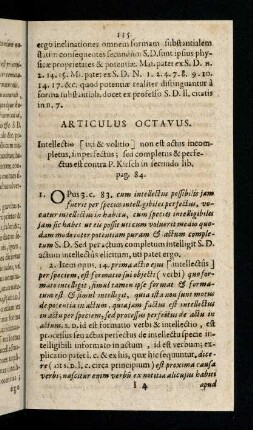 115
ergo inclinationes omnem formam substantialem
statim consequentes secundum S.D. sunt ipsius phy-
sicæ proprietates & potentiæ. Mai. patet ex S. D. n.
2. 14. 15. Mi. patet ex S. D. N. 1. 2. 4. 7. 8. 9. 10.
14. 17. &c. quod potentiæ realiter distinguantur à
forma substantiali, docet ex professo S. D. ll. citatis
in n. 7.
ARTICULUS OCTAVUS.
Intellectio [uti & volitio] non est actus incom-
pletus, imperfectus; sed completus & perfe-
ctus est contra P. Kirsch in secundo lib.
pag. 84.
1. OPus 3. c. 83. cum intellectus possibilis jam
fuerit per species intelligibiles perfectus, vo-
catur intellectus in habitu, cum species intelligibiles
jam sic habet ut eis possit uti cum voluerit medio quo-
dam modo inter potentiam puram & actum comple-
tum S. D. Sed per actum completum intelligit S. D.
actum intellectus elicitum, uti patet, ergo
2. Item opus. 14. prima actio ejus [intellectus]
per speciem, est formatio sui objecti (verbi) quo for-
mato intelligit, simul tamen ipse format & forma-
tum est & simul intelligit, quia ista non sunt motus
de potentia in actum, quia jam factus est intellectus
in actu per speciem, sed processus perfectus de actu in
actum. S. D. id est formatio verbi & intellectio, est
processus seu actus perfectus de intellectu specie in-
telligibili informato in actum, id est verbum; ex-
plicatio patet l. c. & ex his, quæ hic sequuntur, dice-
re (ait S. D. l. c. circa principium) est proxima causa
verbi, nascitur enim verbum ex notitia alicujus habiti
I 4 apud